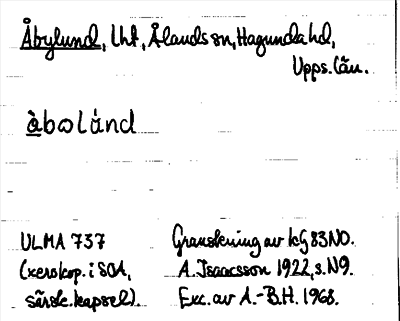 Åbylund, lht, Ålands sn, Hagunda hd,
Upps. län.
åbωlúnd
ULMA 737
(xerokop. i SOA,
särsk. kapsel).
Granskning av kG 83NO.
A. Isaacsson 1922, s. N9.
Exc. av A.-B.H. 1968.